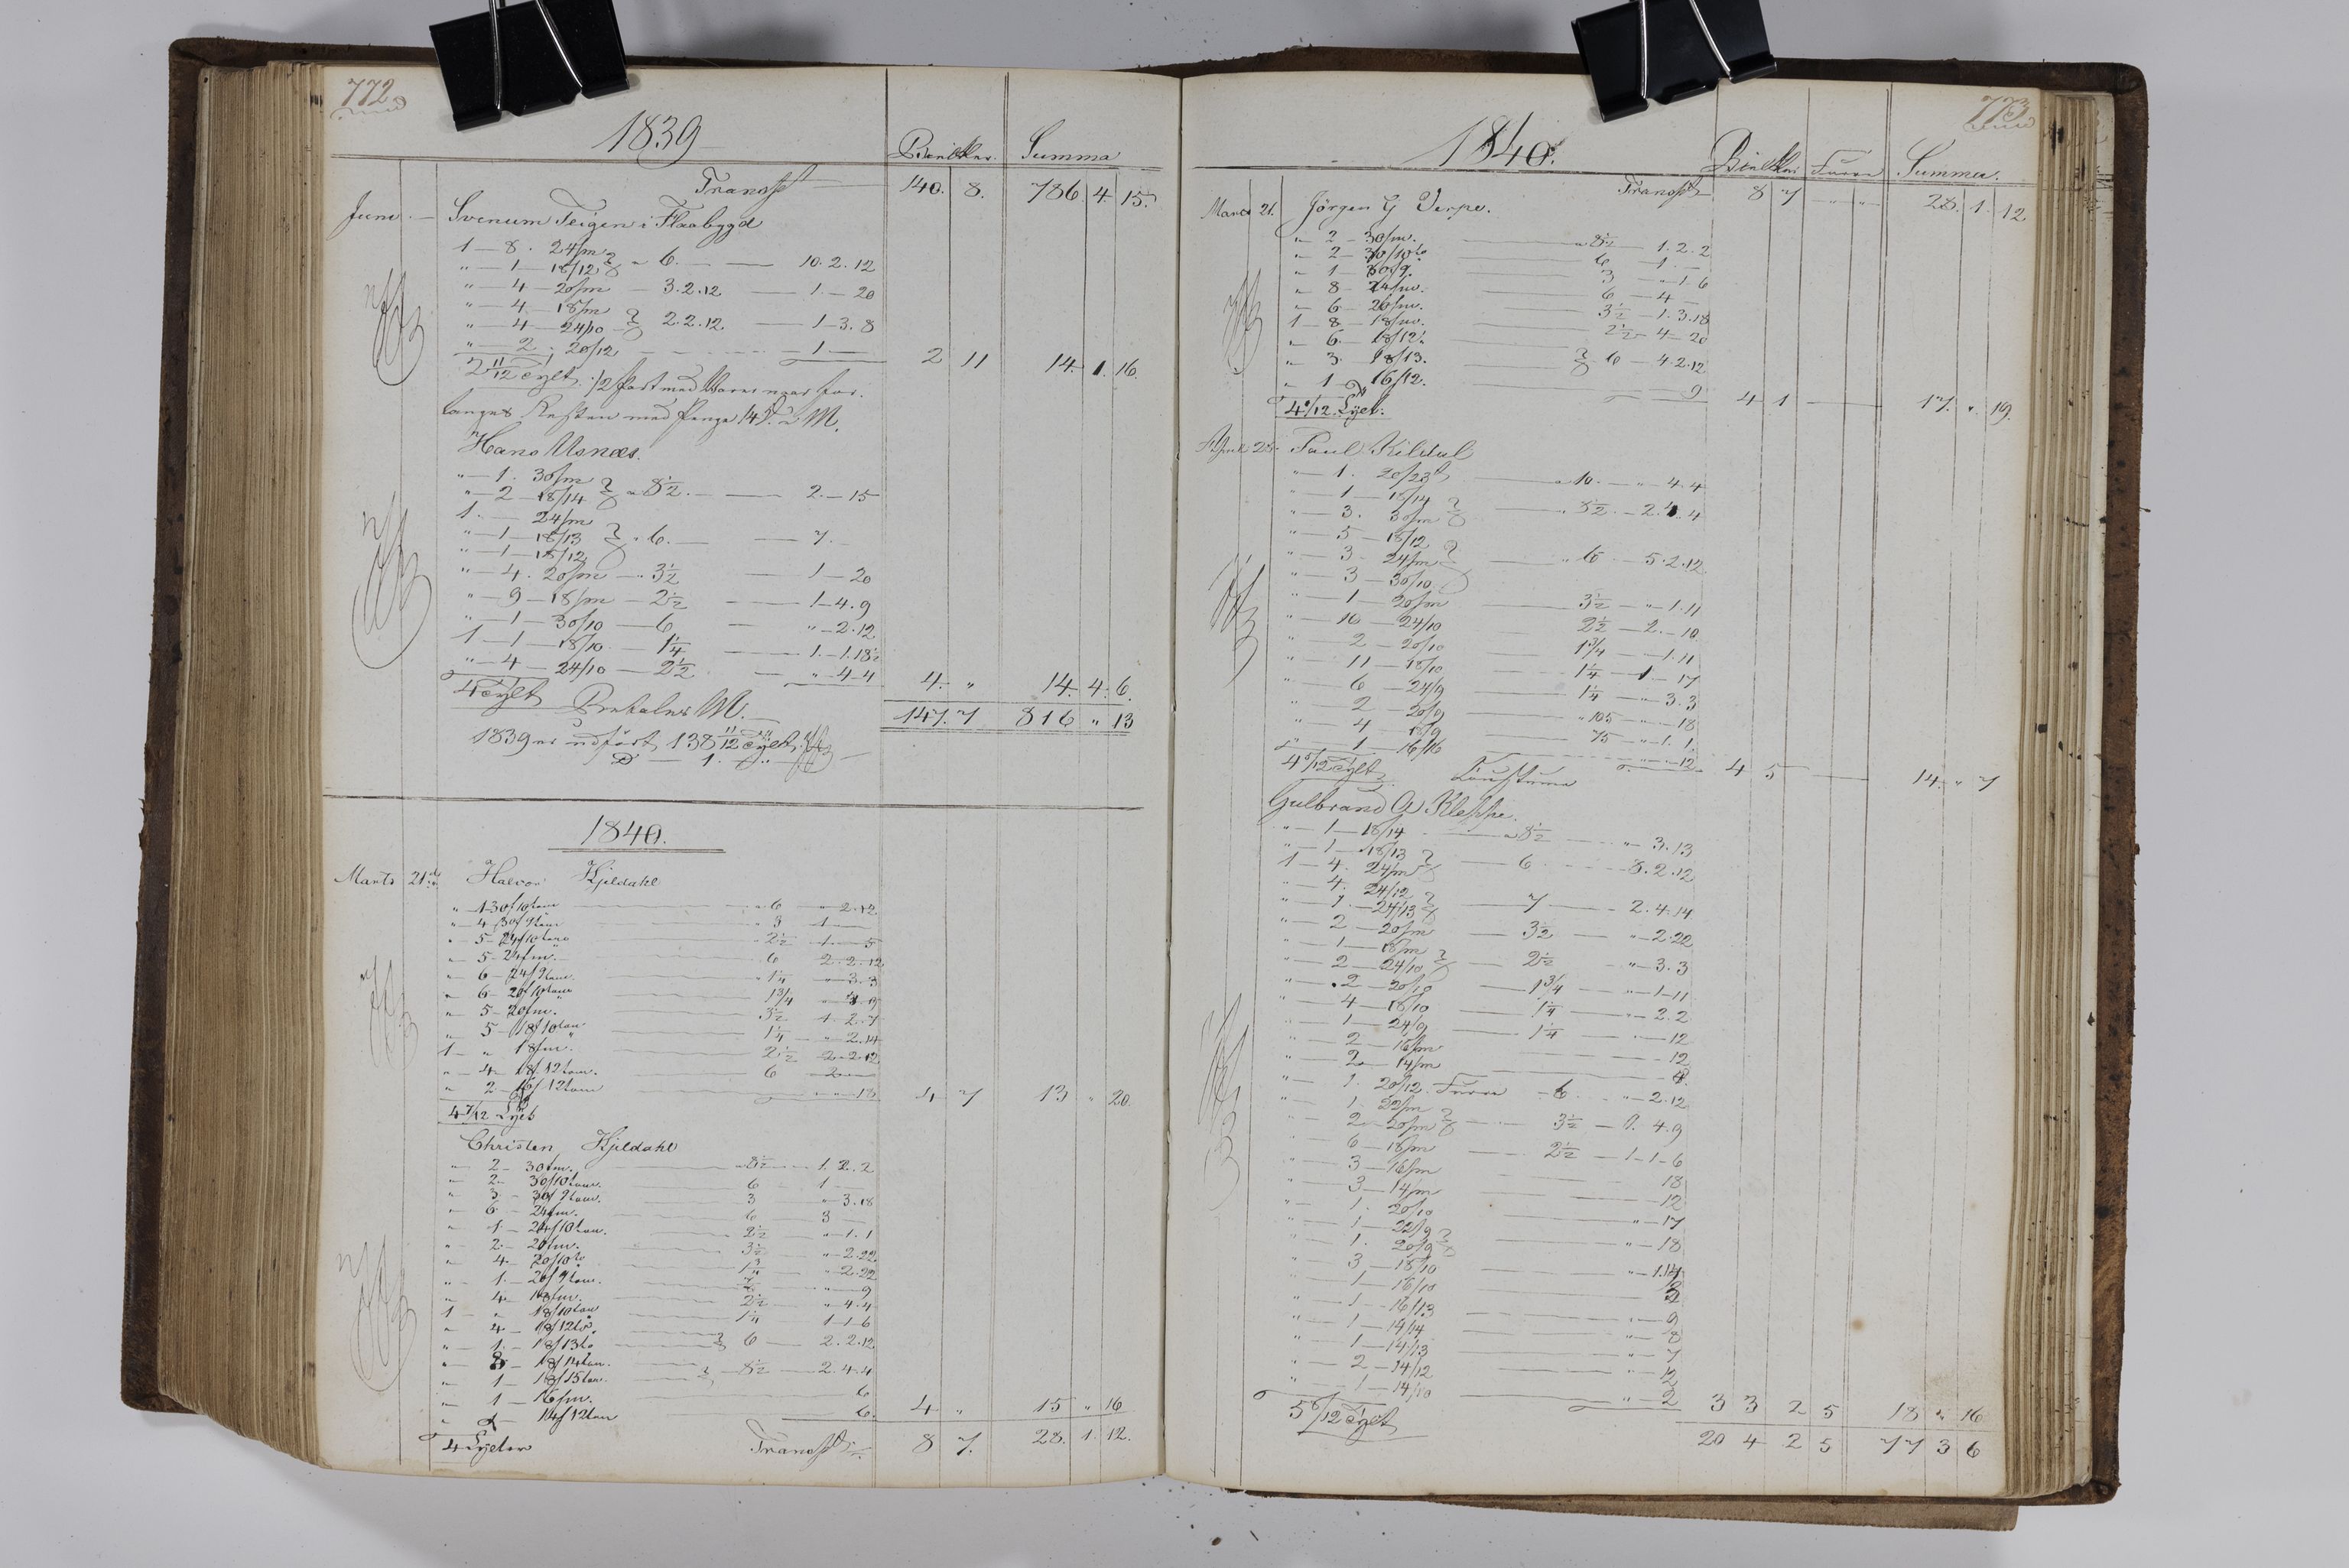 772
1839
Bielkker. Summa
Transpt 140. 8. 786. 4. 15.
Juni. — Svenum Teigen i Flaabygd
1 — 8. 24/m
" — 1 — 18/12 } " 6. — 10. 2. 12
" — 4 — 20/m — 3.2.12 — 1. — 20
" — 4 — 18/m
" — 4 — 24/10 } 2.2.12. — 1 — 3. 8
" — 2. 20/12 — 1 —
2 11/12 Tylt 2 11 14. 1. 16.
langes Resten med Penge 14 " M.
Hans Usnæs.
" — 1. 30/m
" — 2 — 18/14 } " 8½. — 2. — 15
1. — 24/m
" — 1 — 18/13
" — 1 — 18/12 } " 6. — 7. —
" — 4. 20/m — " 3½ — 1 — 20
" — 9 — 18/m — 2½ — 1 — 4. 9
" — 1 — 30/10 — 6 — " — 2. 12
1 — 1 — 18/10 — 1¼ — 1. — 1. 18½
" — 4 — 24/10 — 2½ — " — 4 — 4
4 Tylt Betales M. 4. " 14. 4. 6.
147. 7 816 " 13
1839 er udført 138 11/12 Tylt
D — 1. —
1840.
Marts 21de Halvor Kjeldahl
" 1 30/10 tom " 6 " 2. 12
" 4 30/9 tom " 3 1 —
" 5 — 24/10 tom " 2½ 1 — 5
" 5 — 24/m. 6 2. 2. 12
" 6 — 24/9 tom. " 1¼ " 3. 3
" 6 — 20/10 tom 1¾
" 5 — 20/m. 3½ 1 — 2. 7
" 5 — 18/10 tom 1¼ " 2. 14
1 — " 18/m. 2½ 2 — 2. 12
" — 4 — 18/12 tom. 6 2 —
" 2 — 16/12 tom " — 18
4 7/12 Tylt 4 7 13 " 20
Christen Kjeldahl
" 2 — 30/m. " 8½ 1. 2. 2
" 2 — 30/10 tom. 6 1 —
" 3 — 30/9 tom. 3 " 3. 18
" 6 — 24/m. 6 3 —
" 1 — 24/10 tom. 2½ " 1. 1
" 2 — 20/m. 3½ " 2. 22
" 4 — 20/10 to " 2. 22
" 1 — 20/9 tom. " — 9
" 4 — 18/m. 2½ " 4. 4
1 " 18/10 tom 1¼ 1 — 1 — 6
" 4 — 18/12 to.
" 1 — 18/13 to } 6 — 2. 2. 12
" 8 — 18/14 tom.
" 1 — 18/15 tom. } 8½ — 2. 4. 4
" 1 — 16/m. 6
" 14/12 tom 6. 4 " 15 " 16
4 Tylter Transpt 8 7. 28. 1. 12.
773
1840.
Bielkker Furre Summa.
Transpt 8 7 — " — " — 28. 1. 12
Marts 21. Jörgen G Verpe.
" 2 — 30/m. " 8½ — 1. 2. 2
" 2 — 30/10 to 6 — 1. —
" 1 — 30/9. 3 — " 1. 6
" 8 — 24/m. 6 — 4 —
" 6 — 20/m. 3½ — 1. 3. 18
1 — 8 — 18/m. 2½ — 4 — 20
" 6 — 18/12.
" 3. 18/13. } 6 — 4. 2. 12
" 1 16/12. 9
4 1/12 Tylt. 4 1 — 17. " 19.
April 25. Paul Kildal
" — 1. 20/23 " 10. — " 4. 4
" — 1 — 18/14
" — 3. 30/m } 8½ — 2. 4. 4
" — 5 — 18/12
" — 3 — 24/m
" — 3 — 30/10 } " 6 — 5. 2. 12
" — 1 — 20/m 3½ — " 1. 11
" — 10 — 24/10 2½ — 2. — 10
" — 2 — 20/10 1¾ — 1. 11
" — 11 — 18/10 1¼ — 1. — 17
" — 6 — 24/9 1¼ — " 3. 3
" — 2 — 20/9 " 105 — " — 18
" — 4 — 18/9 75 — " 1. 1
" — 1 — 16/16 — 12
4 5/12 Tylt 4 5 — 14. " 7
Gulbrand O Kleppe.
" — 1 — 18/14 " 8½ — " 3. 13
" — 1 — 18/13
1 — 4. 24/m } 6 — 8. 2. 12
" — 4. 24/12
" — 1. 24/13 } 7 — 2. 4. 14
" — 2 — 20/m 3½ — " 2. 22
" — 1 — 18/m
" — 2 — 24/10 } 2½ — " 3. 3
" — 2 — 20/10 1¾ — " 1 — 11
" — 4 — 18/10 1¼ — " 2. 2
" — 1 — 24/9 1¼ — " — 12
" — 2 — 16/m — 12
" — 2 — 14/m — 8
" — 1. 20/12. Furre — 6 — " 2. 12
" — 1. 22/m
" — 2 — 20/m } 3½ — " 4. 9
" — 6 — 18/m 2½ — 1 — 1 — 6
" — 3 — 16/m — 18
" — 3 — 14/m — 12
" — 1. 20/10 " — 17
" — 1 — 22/9
" — 1. 20/9 } " — 18
" — 3 — 18/10 " — 1. 14
" — 1 — 16/10
" — 1 — 16/13 " — 9
" — 1 — 14/14 " — 8
" — 1 — 14/13 " — 7
" — 2 — 14/12 — 12
" — 1 — 14/10 " — 2
5 8/12 Tylt 3 3 2 5 18 " 16
20 4 2 5 77 3 6